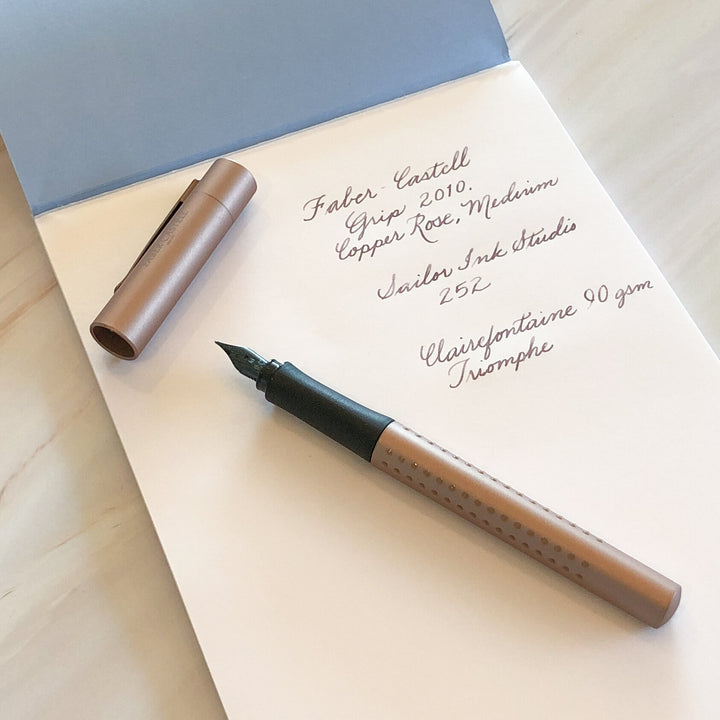 Faber-Castell
Grip 2010.
Copper Rose, Medium
Sailor Ink Studio
252
Clairefontaine 90 gsm
Triomphe